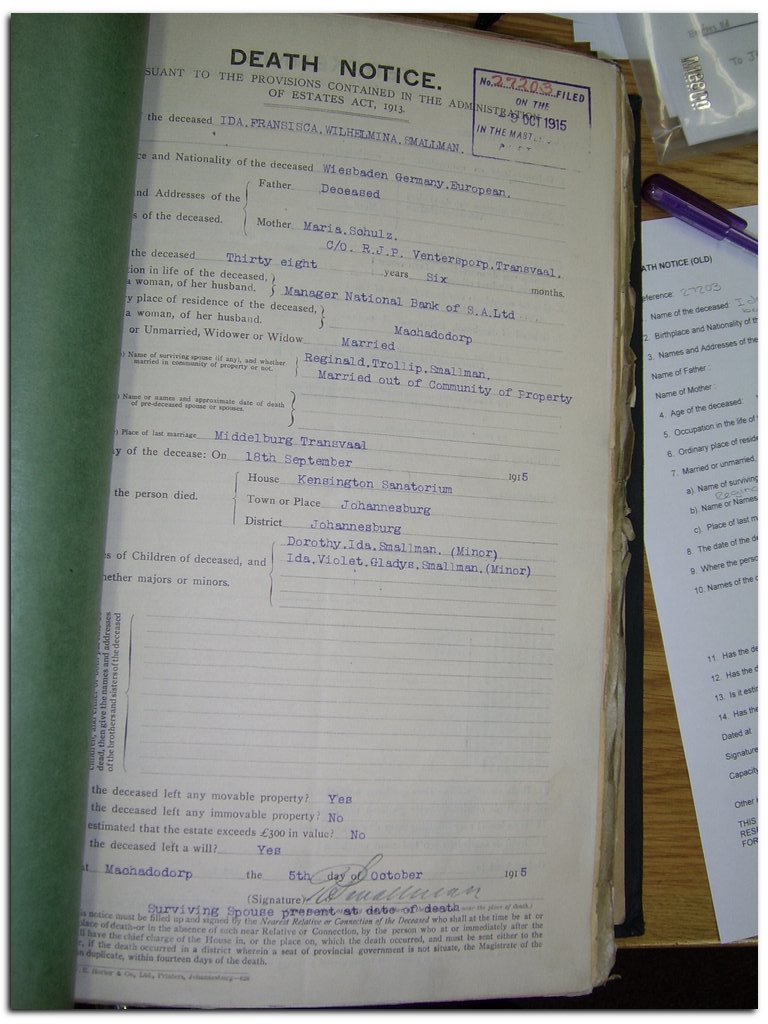 DEATH NOTICE.
SUANT TO THE PROVISIONS CONTAINED IN THE ADMINISTRATION
OF ESTATES ACT, 1913.
No. 27203 FILED
ON THE
9 OCT 1915
IN THE MAST
the deceased IDA.FRANSISCA.WILHELMINA.SMALLMAN.
ce and Nationality of the deceased Wiesbaden Germany.European.
nd Addresses of the
s of the deceased.
Father Deceased
Mother Maria.Schulz.
C/O. R.J.P. Ventersporp.Transvaal.
the deceased Thirty eight years Six months.
tion in life of the deceased,
a woman, of her husband. Manager National Bank of S.A.Ltd
y place of residence of the deceased,
a woman, of her husband. Machadodorp
or Unmarried, Widower or Widow Married
) Name of surviving spouse (if any), and whether
married in community of property or not.
Reginald.Trollip.Smallman.
Married out of Community of Property
) Name or names and approximate date of death
of pre-deceased spouse or spouses.
) Place of last marriage Middelburg Transvaal
y of the decease: On 18th September 1915
the person died.
House Kensington Sanatorium
Town or Place Johannesburg
District Johannesburg
s of Children of deceased, and
hether majors or minors.
Dorothy.Ida.Smallman. (Minor)
Ida.Violet.Gladys.Smallman.(Minor)
dead, then give the names and addresses
of the brothers and sisters of the deceased
the deceased left any movable property? Yes
the deceased left any immovable property? No
estimated that the estate exceeds £300 in value? No
the deceased left a will? Yes
at Machadodorp the 5th day of October 1915
(Signature) Smallman
Surviving Spouse present at date of death
s notice must be filled up and signed by the Nearest Relative or Connection of the Deceased who shall at the time be at or
lace of death–or in the absence of such near Relative or Connection, by the person who at or immediately after the
ll have the chief charge of the House in, or the place on, which the death occurred, and must be sent either to the
r, if the death occurred in a district wherein a seat of provincial government is not situate, the Magistrate of the
n duplicate, within fourteen days of the death.
E. Hortor & Co., Ltd., Printers, Johannesburg
To
ATH NOTICE (OLD)
eference: 27203
Name of the deceased: Ida
2. Birthplace and Nationality of th
3. Names and Addresses of the
Name of Father :
Name of Mother :
4. Age of the deceased:
5. Occupation in the life of
6. Ordinary place of reside
7. Married or unmarried.
a). Name of surviving
b). Name or Names
c). Place of last m
8. The date of the de
9. Where the perso
10. Names of the c
11. Has the de
12. Has the d
13. Is it esti
14. Has the
Dated at
Signature
Capacity
Other
THIS
RES
FOR